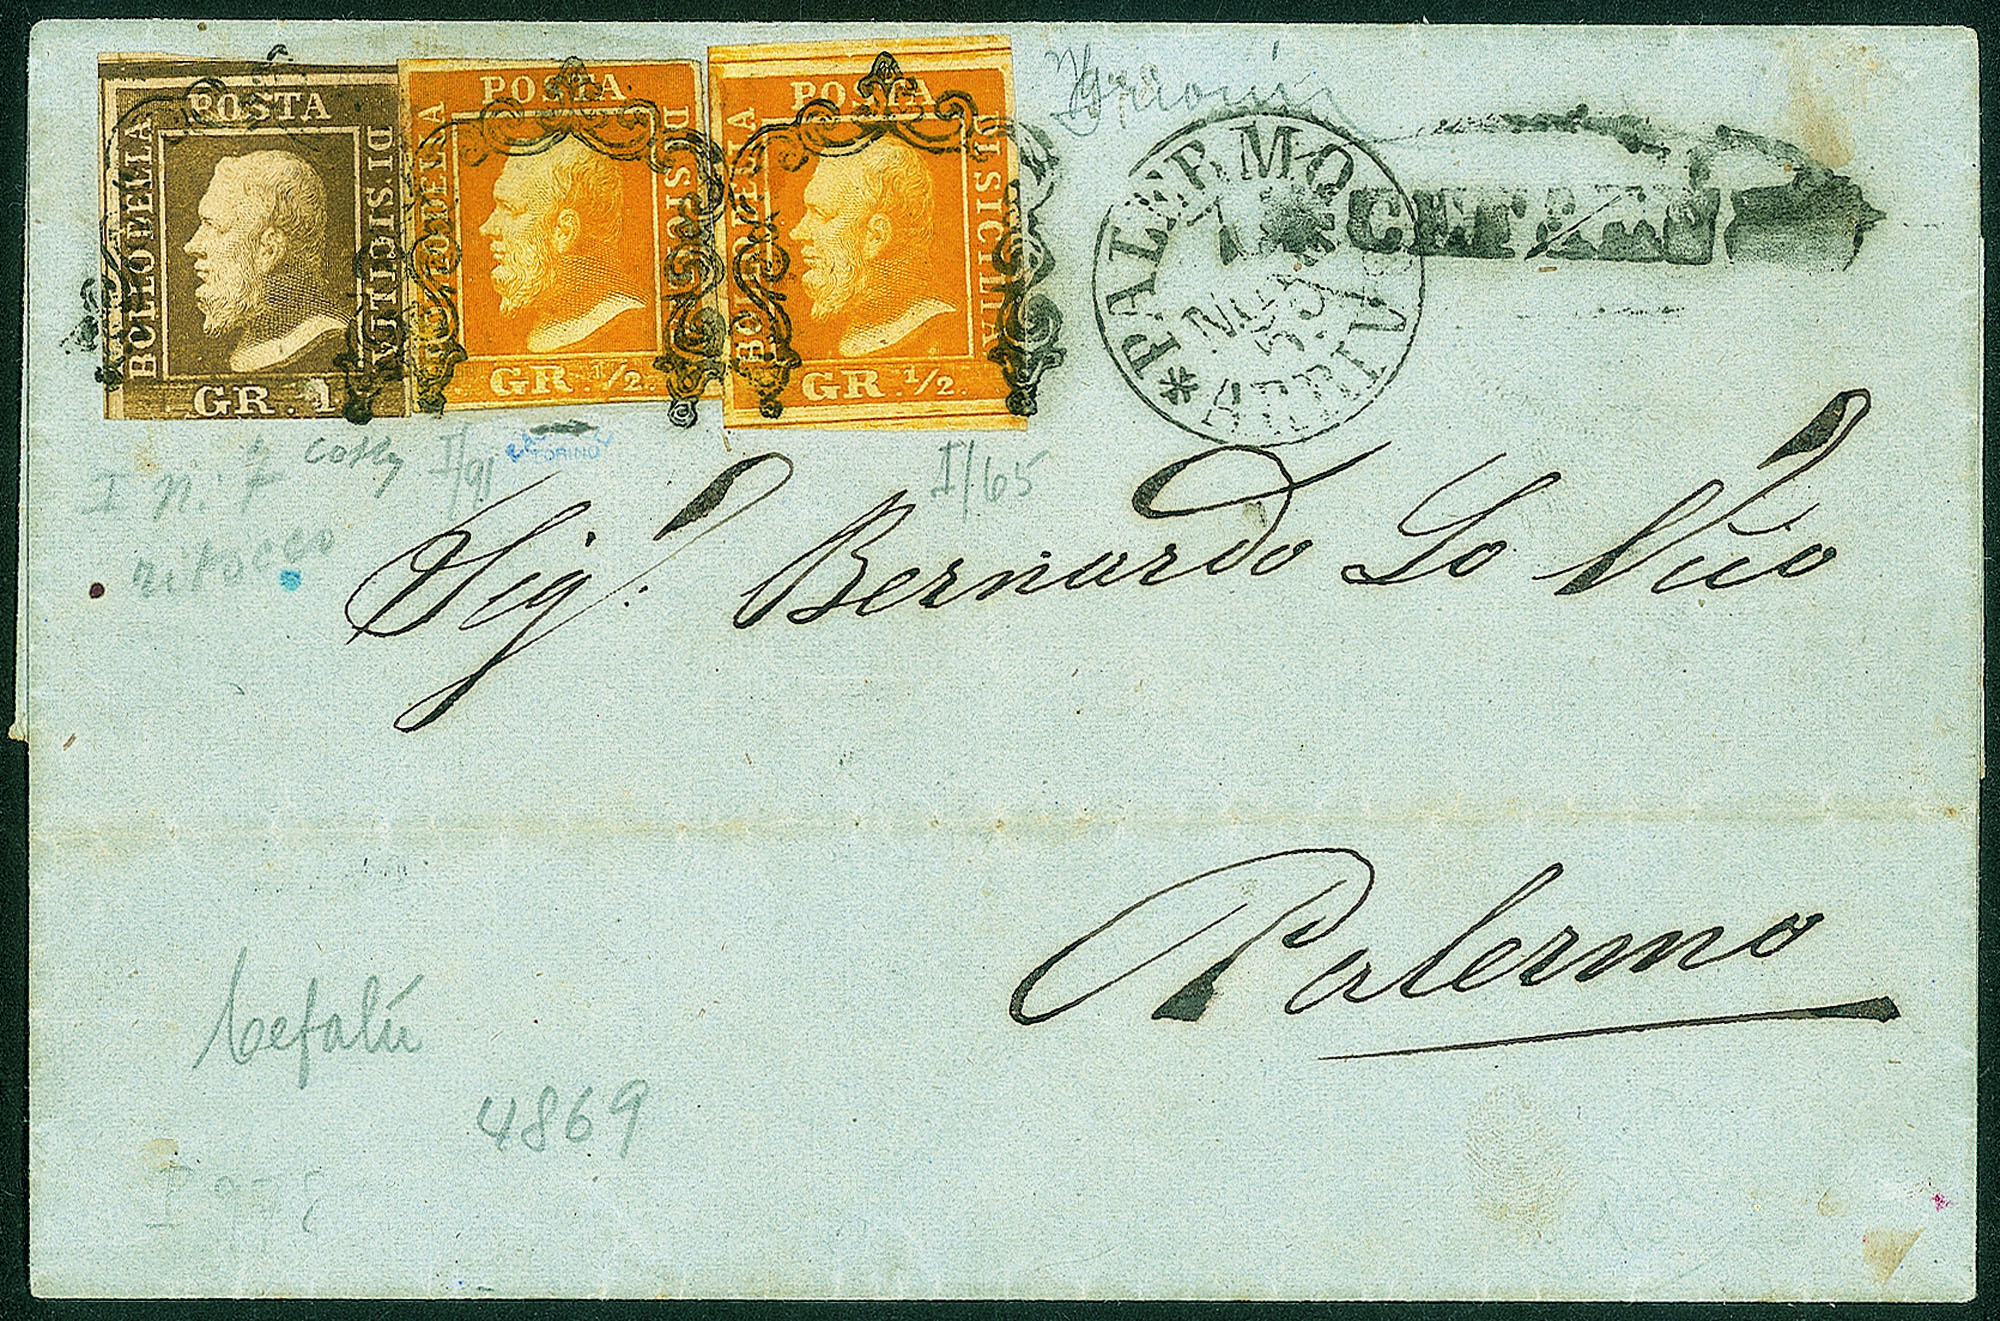 POSTA
BOLLO DELLA
DI SICILIA
GR. 1
POSTA
BOLLO DELLA
DI SICILIA
GR. 1/2.
POSTA
BOLLO DELLA
DI SICILIA
GR. 1/2.
* PALERMO
ARRIVO
I n. 7
ritocco
I/91
TORINO
I/65
Sig.r Bernardo Lo Vico
Palermo
Cefalù
4869